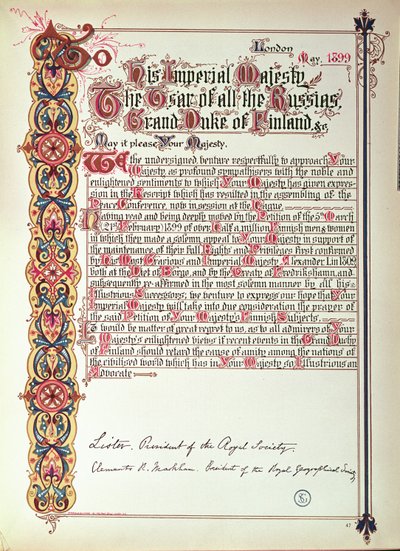 London
May, 1899
To
His Imperial Majesty
The Tsar of all the Russias,
Grand Duke of Finland, &c
May it please Your Majesty.
We the undersigned venture respectfully to approach Your
Majesty as profound sympathisers with the noble and
enlightened sentiments to which Your Majesty has given expres-
sion in the Rescript which has resulted in the assembling of the
Peace Conference now in session at the Hague.
Having read and being deeply moved by the Petition of the 5th March
(21st February) 1899 of over half a million Finnish men & women
in which they made a solemn appeal to Your Majesty in support of
the maintenance of their full Rights and Privileges first confirmed
by His Most Gracious and Imperial Majesty, Alexander I, in 1809,
both at the Diet of Borgo, and by the Treaty of Fredrikshamn, and
subsequently re-affirmed in the most solemn manner by all his
Illustrious Successors; we venture to express our hope that Your
Imperial Majesty will take into due consideration the prayer of
the said Petition of Your Majesty's Finnish Subjects.
It would be matter of great regret to us, as to all admirers of Your
Majesty's enlightened views if recent events in the Grand Duchy
of Finland should retard the cause of amity among the nations of
the civilised world which has in Your Majesty so Illustrious an
Advocate
Lister. President of the Royal Society.
Clements R. Markham. President of the Royal Geographical Society
47